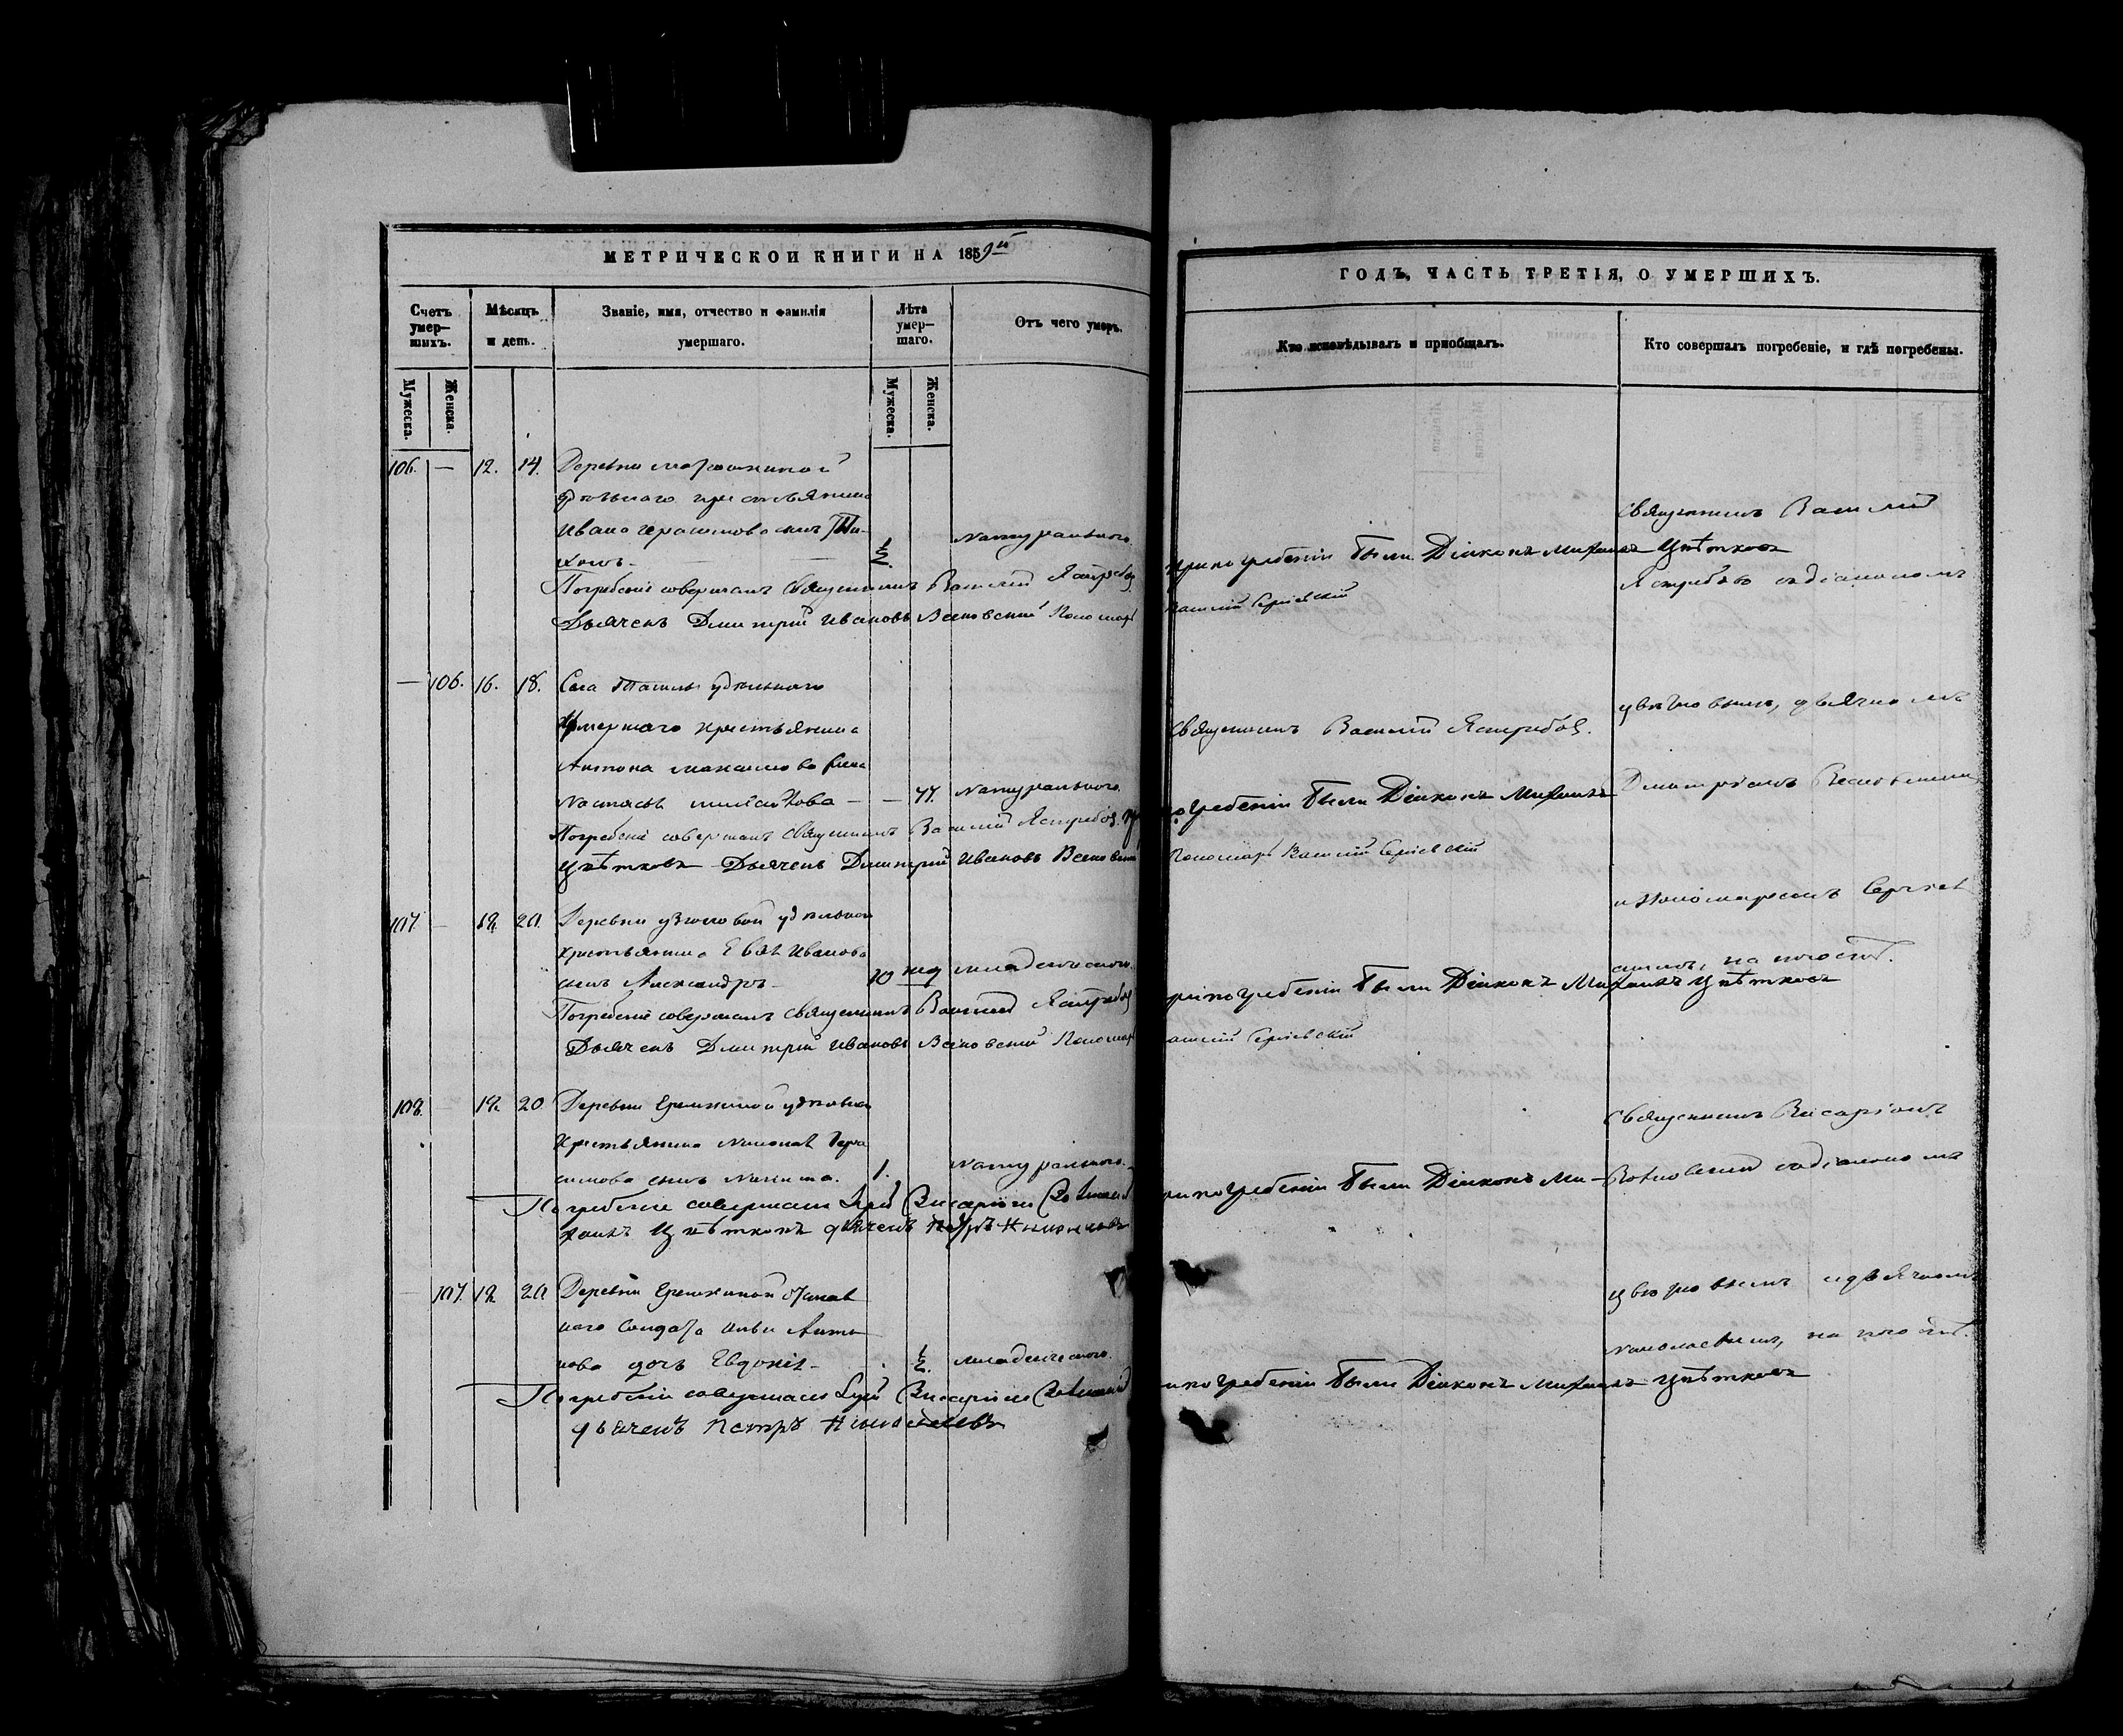 МЕТРИЧЕСКОЙ КНИГИ НА 1859й
Счетъ умер-
шихъ.
Мѣсяцъ
и день.
Званіе, имя, отчество и фамилія
умершаго.
Лѣта
умер-
шаго.
Отъ чего умеръ.
Мужеска.
Женска.
Мужеска.
Женска.
106. — 12. 14. Деревни
удѣльнаго крестьянина
Ивана Герасимова сынъ Ти-
хонъ — ½. натуральною.
Погребеніе совершалъ Священникъ Василій Ястребов
Дьячекъ Дмитрій Ивановъ Пономарь
— 106. 16. 18. Села удѣльнаго
умершаго крестьянина
Антона Максимова жена
Настасья — 77. натуральною.
Погребеніе совершалъ Священникъ Василій Ястребов. При
Цвѣтковъ Дьячекъ Дмитрій Ивановъ
107. — 18. 20. Деревни удѣльнаго
крестьянина Иванова
сынъ Александръ — 10 нед младенческою.
Погребеніе совершалъ Священникъ Василій Ястребов
Дьячекъ Дмитрій Ивановъ Пономарь
108. 18. 20 Деревни Еремкиной удѣльнаго
Крестьянина Гера
симова сынъ Никита. 1. натуральною.
Погребеніе совершалъ Іерей Висаріонъ
хаилъ Цвѣтковъ дьячекъ Петръ
107. 18. 20 Деревни Еремкиной
наго Солдата Анто
нова дочь Евдокія — ½. младенческою.
Погребеніе совершалъ Іерей Висаріонъ
дьячекъ Петръ
ГОДЪ, ЧАСТЬ ТРЕТІЯ, О УМЕРШИХЪ.
Кто исповѣдывалъ и пріобщалъ.
Кто совершалъ погребеніе, и гдѣ погребены.
Священникъ Василій
при погребеніи были Діаконъ Михаилъ Цвѣтковъ
Ястребовъ съ діакономъ
Василій Сергіевскій
Цвѣтковымъ, дьячкомъ
Священникъ Василій Ястребов.
погребеніи были Діаконъ Михаилъ
Дмитріемъ
Пономарь Василій Сергіевскій
и Пономаремъ Сергіев
скимъ, на погостѣ.
при погребеніи были Діаконъ Михаилъ Цвѣтковъ
Василій Сергіевскій
Священникъ Висаріонъ
при погребеніи были Діаконъ Ми-
съ діакономъ
Цвѣтковымъ и дьячкомъ
на погостѣ.
при погребеніи были Діаконъ Михаилъ Цвѣтковъ